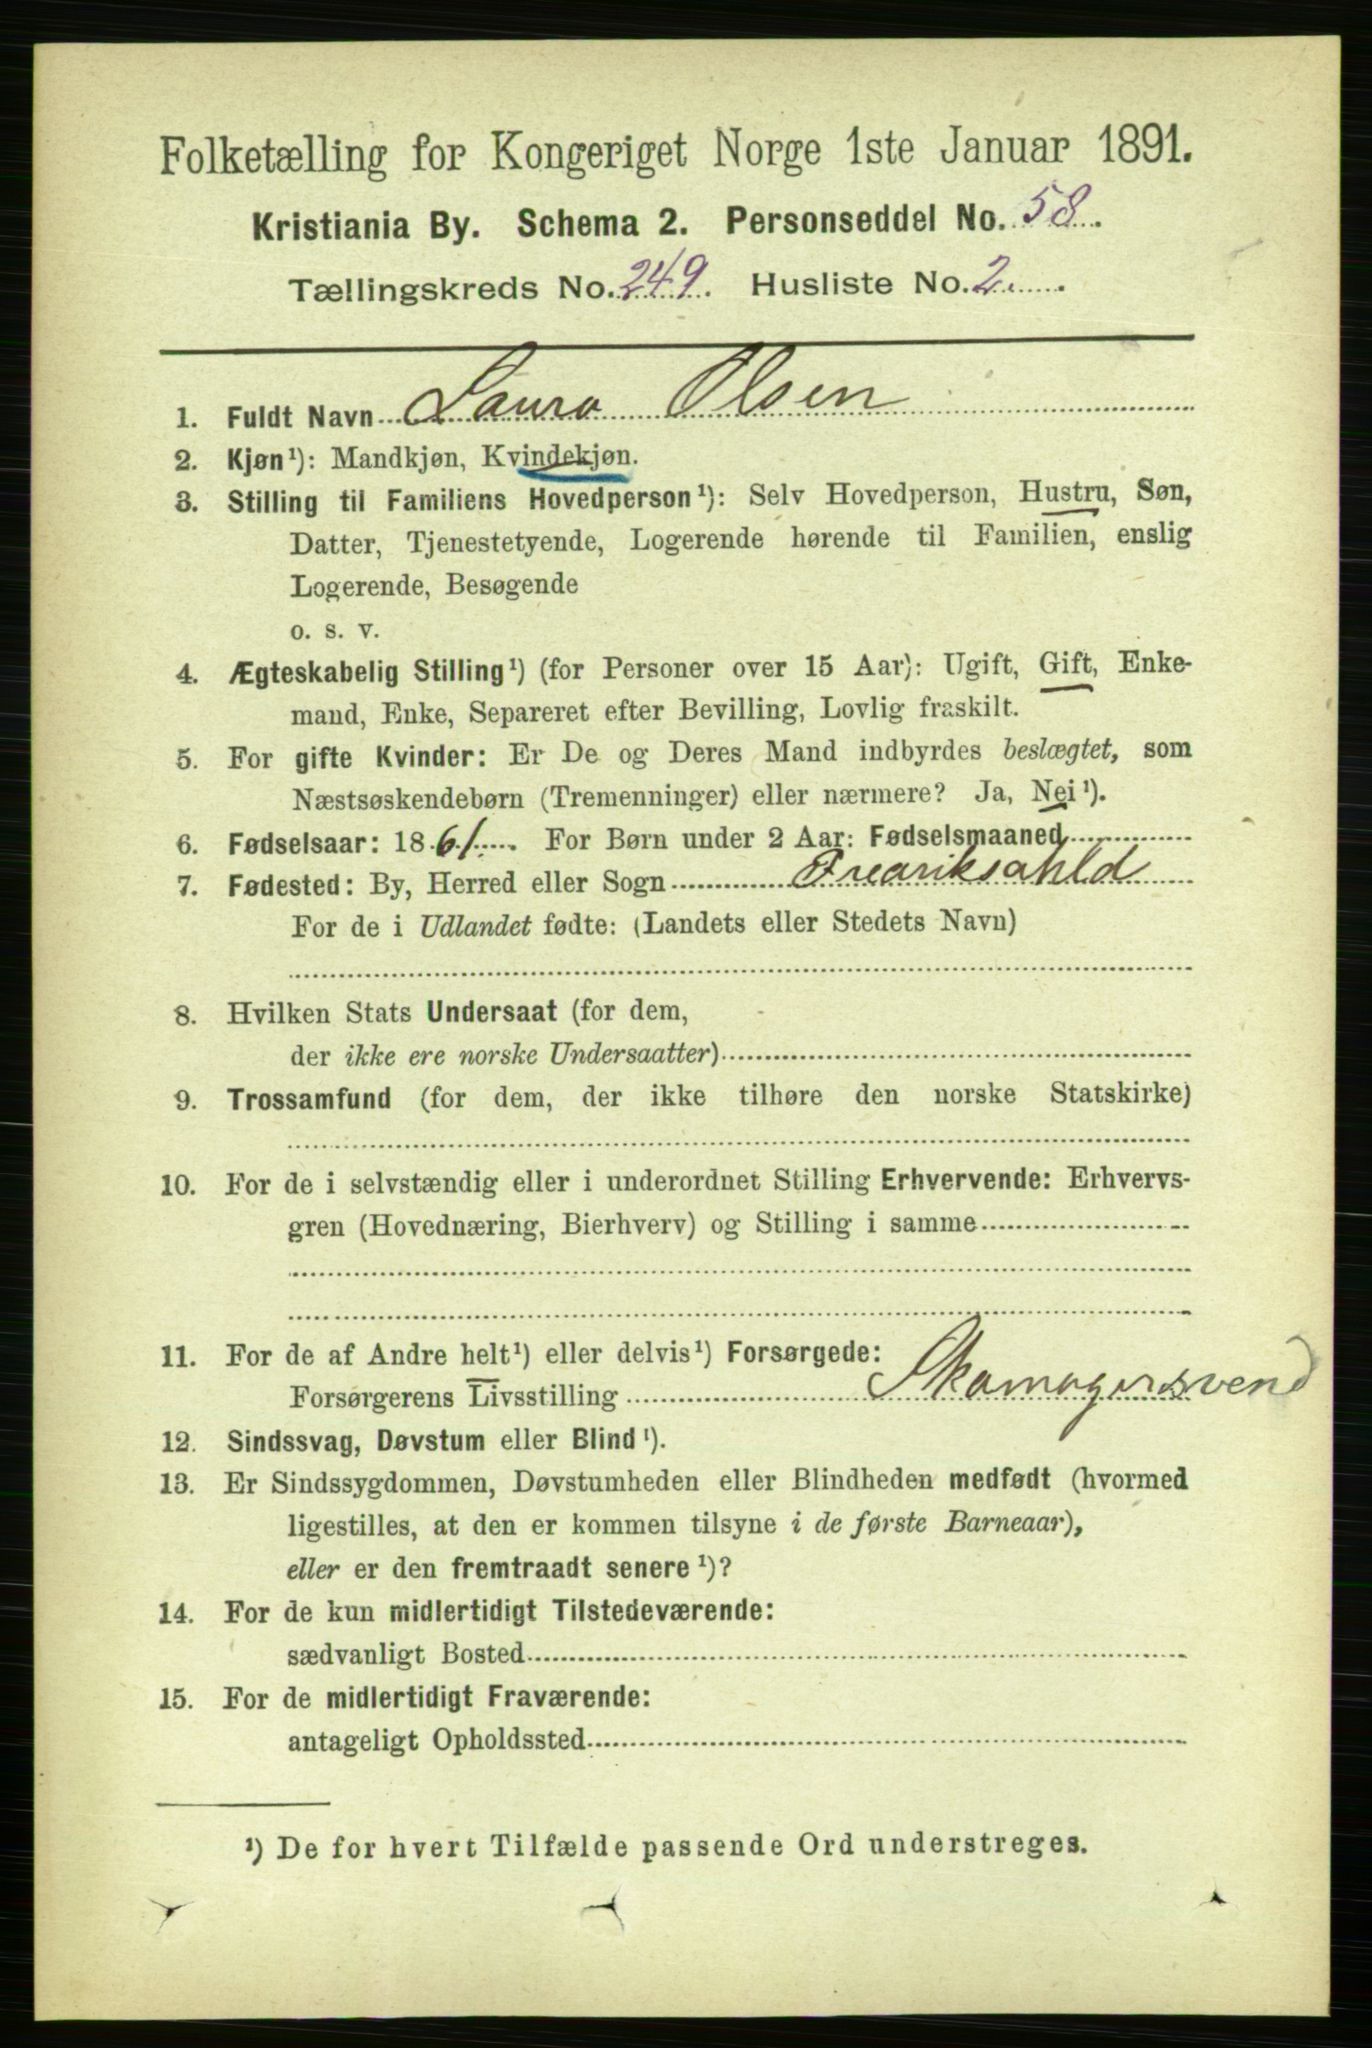 Folketælling for Kongeriget Norge 1ste Januar 1891.
Kristiania By. Schema 2. Personseddel No. 58.
Tællingskreds No. 249. Husliste No. 2.
1. Fuldt Navn Laura Olsen
2. Kjøn¹): Mandkjøn, Kvindekjøn.
3. Stilling til Familiens Hovedperson¹): Selv Hovedperson, Hustru, Søn,
Datter, Tjenestetyende, Logerende hørende til Familien, enslig
Logerende, Besøgende
o. s. v.
4. Ægteskabelig Stilling¹) (for Personer over 15 Aar): Ugift, Gift, Enke-
mand, Enke, Separeret efter Bevilling, Lovlig fraskilt.
5. For gifte Kvinder: Er De og Deres Mand indbyrdes beslægtet, som
Næstsøskendebørn (Tremenninger) eller nærmere? Ja, Nei¹).
6. Fødselsaar: 1861. For Børn under 2 Aar: Fødselsmaaned
7. Fødested: By, Herred eller Sogn Fredriksahld
For de i Udlandet fødte: (Landets eller Stedets Navn)
8. Hvilken Stats Undersaat (for dem,
der ikke ere norske Undersaatter)
9. Trossamfund (for dem, der ikke tilhøre den norske Statskirke)
10. For de i selvstændig eller i underordnet Stilling Erhvervende: Erhvervs-
gren (Hovednæring, Bierhverv) og Stilling i samme
11. For de af Andre helt¹) eller delvis¹) Forsørgede:
Forsørgerens Livsstilling Skomagersvend
12. Sindssvag, Døvstum eller Blind¹).
13. Er Sindssygdommen, Døvstumheden eller Blindheden medfødt (hvormed
ligestilles, at den er kommen tilsyne i de første Barneaar),
eller er den fremtraadt senere¹)?
14. For de kun midlertidigt Tilstedeværende:
sædvanligt Bosted
15. For de midlertidigt Fraværende:
antageligt Opholdssted
¹) De for hvert Tilfælde passende Ord understreges.